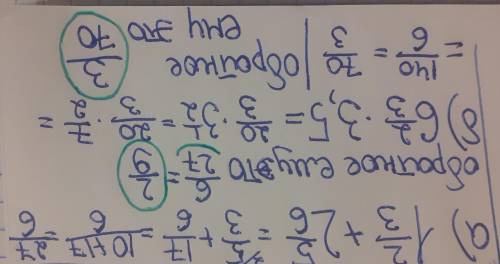 а) 1 2/3 + 2 5/6 = 5/3 + 17/6 = 10+17/6 = 27/6
обратное ему это 6/27 = 2/9
в) 6 2/3 · 3,5 = 20/3 · 3 1/2 = 20/3 · 7/2 =
= 140/6 = 70/3 | обратное 3/70
ему это